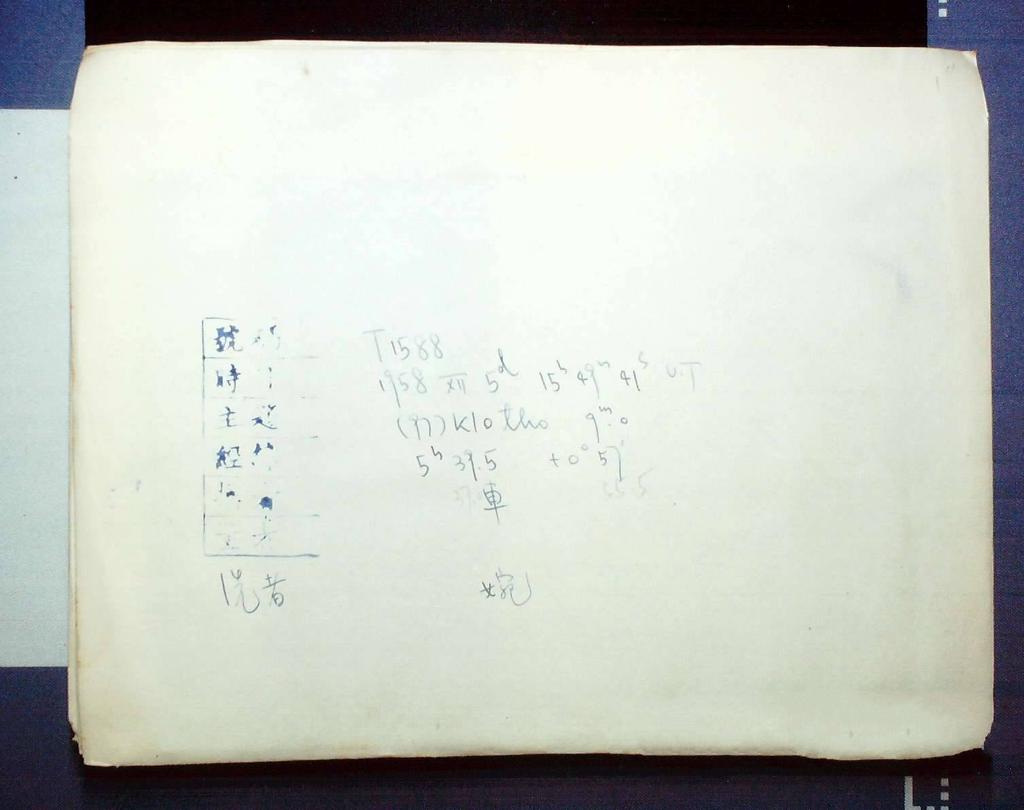 號 T1588
時 1958 XII 5d 15h 49m 41s U.T
主 (97) Klotho 9m.0
經 5h 39.5 +0° 57'
車
洗者 婉